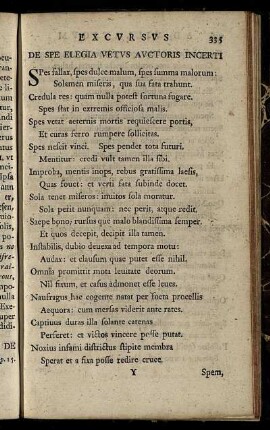 EXCVRSVS 335
DE SPE ELEGIA VETVS AVCTORIS INCERTI
SPes fallax, spes dulce malum, spes summa malorum:
Solamen miseris, qua sua fata trahunt.
Credula res: quam nulla potest fortuna fugare.
Spes stat in extremis officiosa malis.
Spes vetat aeternis mortis requiescere portis,
Et curas ferro rumpere sollicitas.
Spes nescit vinci. Spes pendet tota futuri.
Mentitur: credi vult tamen illa sibi.
Improba, mentis inops, rebus gratissima laesis,
Quas fouet: et verti fata subinde docet.
Sola tenet miseros: inuitos sola moratur.
Sola perit nunquam: nec perit, atque redit.
Saepe bono; rursus quae malo blandissima semper.
Et quos decepit, decipit illa tamen.
Instabilis, dubio deuexa ad tempora motu:
Audax: et clausum quae putet esse nihil.
Omnia promittit mota leuitate deorum.
Nil fixum, et casus admonet esse leues.
Naufragus hac cogente natat per iacta procellis
Aequora: cum mersas viderit ante rates.
Captiuus duras illa solante catenas
Perferet: et victos vincere posse putat.
Noxius infami districtus stipite membra
Sperat et a fixa posse redire cruce.
Y Spem,
DE